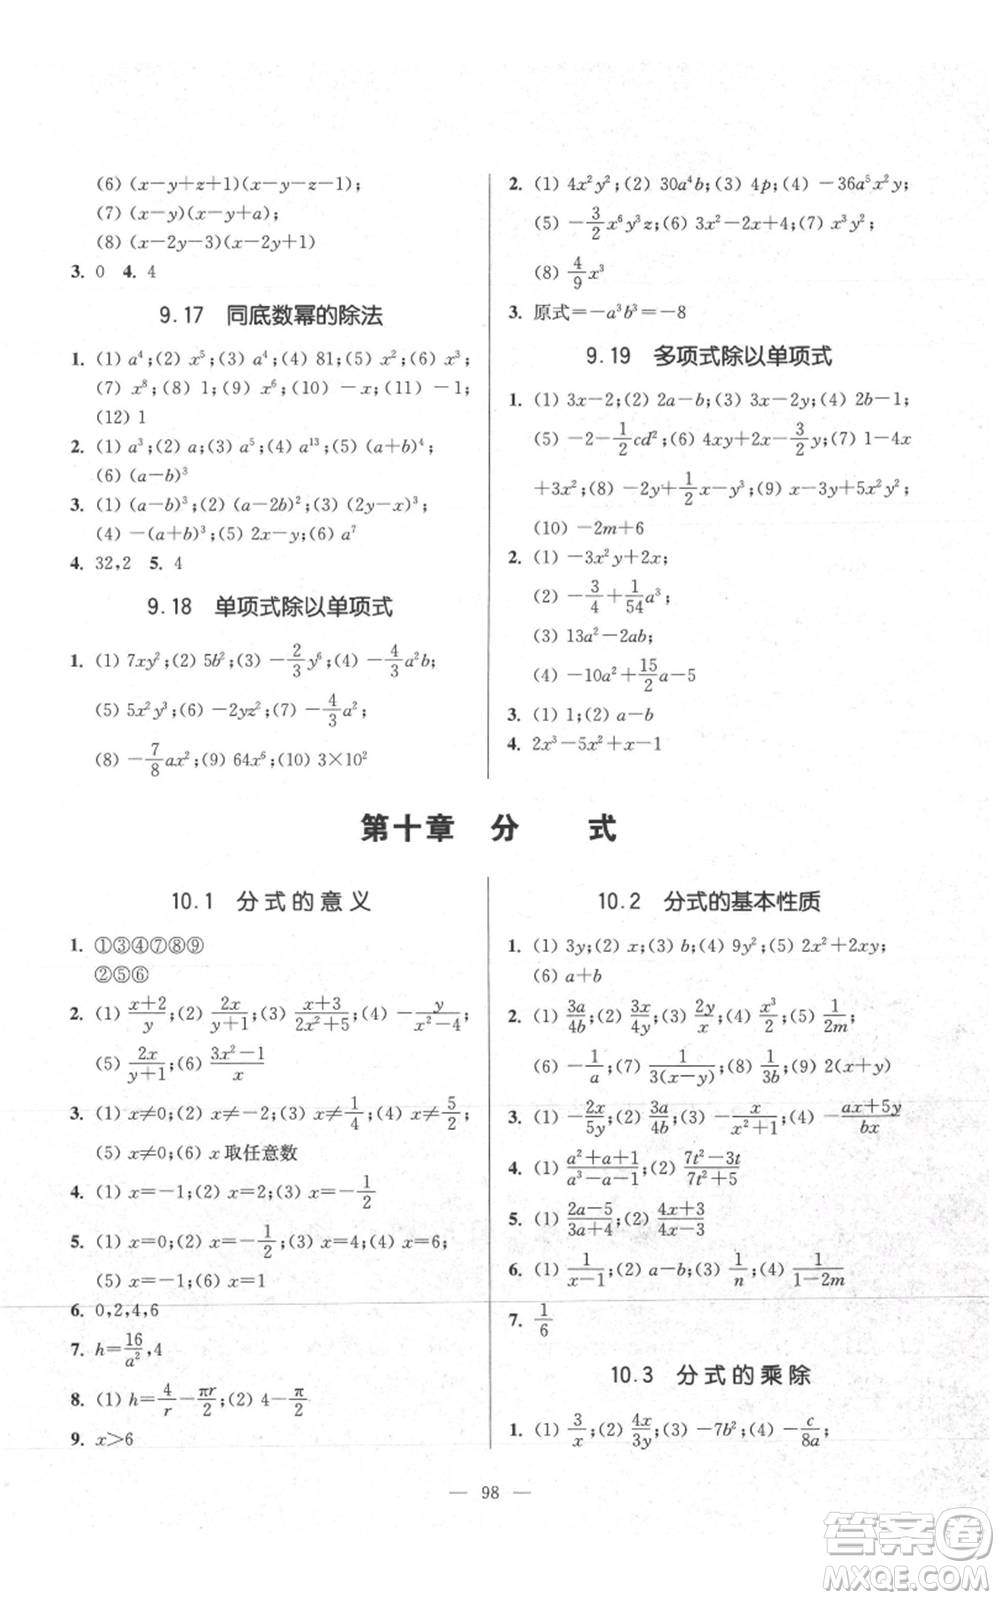 (6) (x－y＋z＋1)(x－y－z－1);
(7) (x－y)(x－y＋a);
(8) (x－2y－3)(x－2y＋1)
3. 0 4. 4
9.17 同底数幂的除法
1. (1) a⁴;(2) x⁵;(3) a⁴;(4) 81;(5) x²;(6) x³;
(7) x⁸;(8) 1;(9) x⁶;(10) －x;(11) －1;
(12) 1
2. (1) a³;(2) a;(3) a⁵;(4) a¹³;(5) (a＋b)⁴;
(6) (a－b)³
3. (1) (a－b)³;(2) (a－2b)²;(3) (2y－x)³;
(4) －(a＋b)³;(5) 2x－y;(6) a⁷
4. 32,2 5. 4
9.18 单项式除以单项式
1. (1) 7xy²;(2) 5b²;(3) －2/3 y⁶;(4) －4/3 a²b;
(5) 5x²y³;(6) －2yz²;(7) －4/3 a²;
(8) －7/8 ax²;(9) 64x⁶;(10) 3×10²
2. (1) 4x²y²;(2) 30a⁴b;(3) 4p;(4) －36a⁵x²y;
(5) －3/2 x⁶y³z;(6) 3x²－2x＋4;(7) x³y²;
(8) 4/9 x³
3. 原式＝－a³b³＝－8
9.19 多项式除以单项式
1. (1) 3x－2;(2) 2a－b;(3) 3x－2y;(4) 2b－1;
(5) －2－1/2 cd²;(6) 4xy＋2x－3/2 y;(7) 1－4x
＋3x²;(8) －2y＋1/2 x－y³;(9) x－3y＋5x²y²;
(10) －2m＋6
2. (1) －3x²y＋2x;
(2) －3/4＋1/54 a³;
(3) 13a²－2ab;
(4) －10a²＋15/2 a－5
3. (1) 1;(2) a－b
4. 2x³－5x²＋x－1
第十章 分 式
10.1 分式的意义
1. ①③④⑦⑧⑨
②⑤⑥
2. (1) (x＋2)/y;(2) 2x/(y＋1);(3) (x＋3)/(2x²＋5);(4) －y/(x²－4);
(5) 2x/(y＋1);(6) (3x²－1)/x
3. (1) x≠0;(2) x≠－2;(3) x≠1/4;(4) x≠5/2;
(5) x≠0;(6) x 取任意数
4. (1) x＝－1;(2) x＝2;(3) x＝－1/2
5. (1) x＝0;(2) x＝－1/2;(3) x＝4;(4) x＝6;
(5) x＝－1;(6) x＝1
6. 0,2,4,6
7. h＝16/a²,4
8. (1) h＝4/r－πr/2;(2) 4－π/2
9. x＞6
10.2 分式的基本性质
1. (1) 3y;(2) x;(3) b;(4) 9y²;(5) 2x²＋2xy;
(6) a＋b
2. (1) 3a/4b;(2) 3x/4y;(3) 2y/x;(4) x³/2;(5) 1/2m;
(6) －1/a;(7) 1/3(x－y);(8) 1/3b;(9) 2(x＋y)
3. (1) －2x/5y;(2) 3a/4b;(3) －x/(x²＋1);(4) －(ax＋5y)/bx
4. (1) (a²＋a＋1)/(a³－a－1);(2) (7t²－3t)/(7t²＋5)
5. (1) (2a－5)/(3a＋4);(2) (4x＋3)/(4x－3)
6. (1) 1/(x－1);(2) a－b;(3) 1/n;(4) 1/(1－2m)
7. 1/6
10.3 分式的乘除
1. (1) 3/x;(2) 4x/3y;(3) －7b²;(4) －c/8a;
— 98 —
答案圈
MXQE.COM